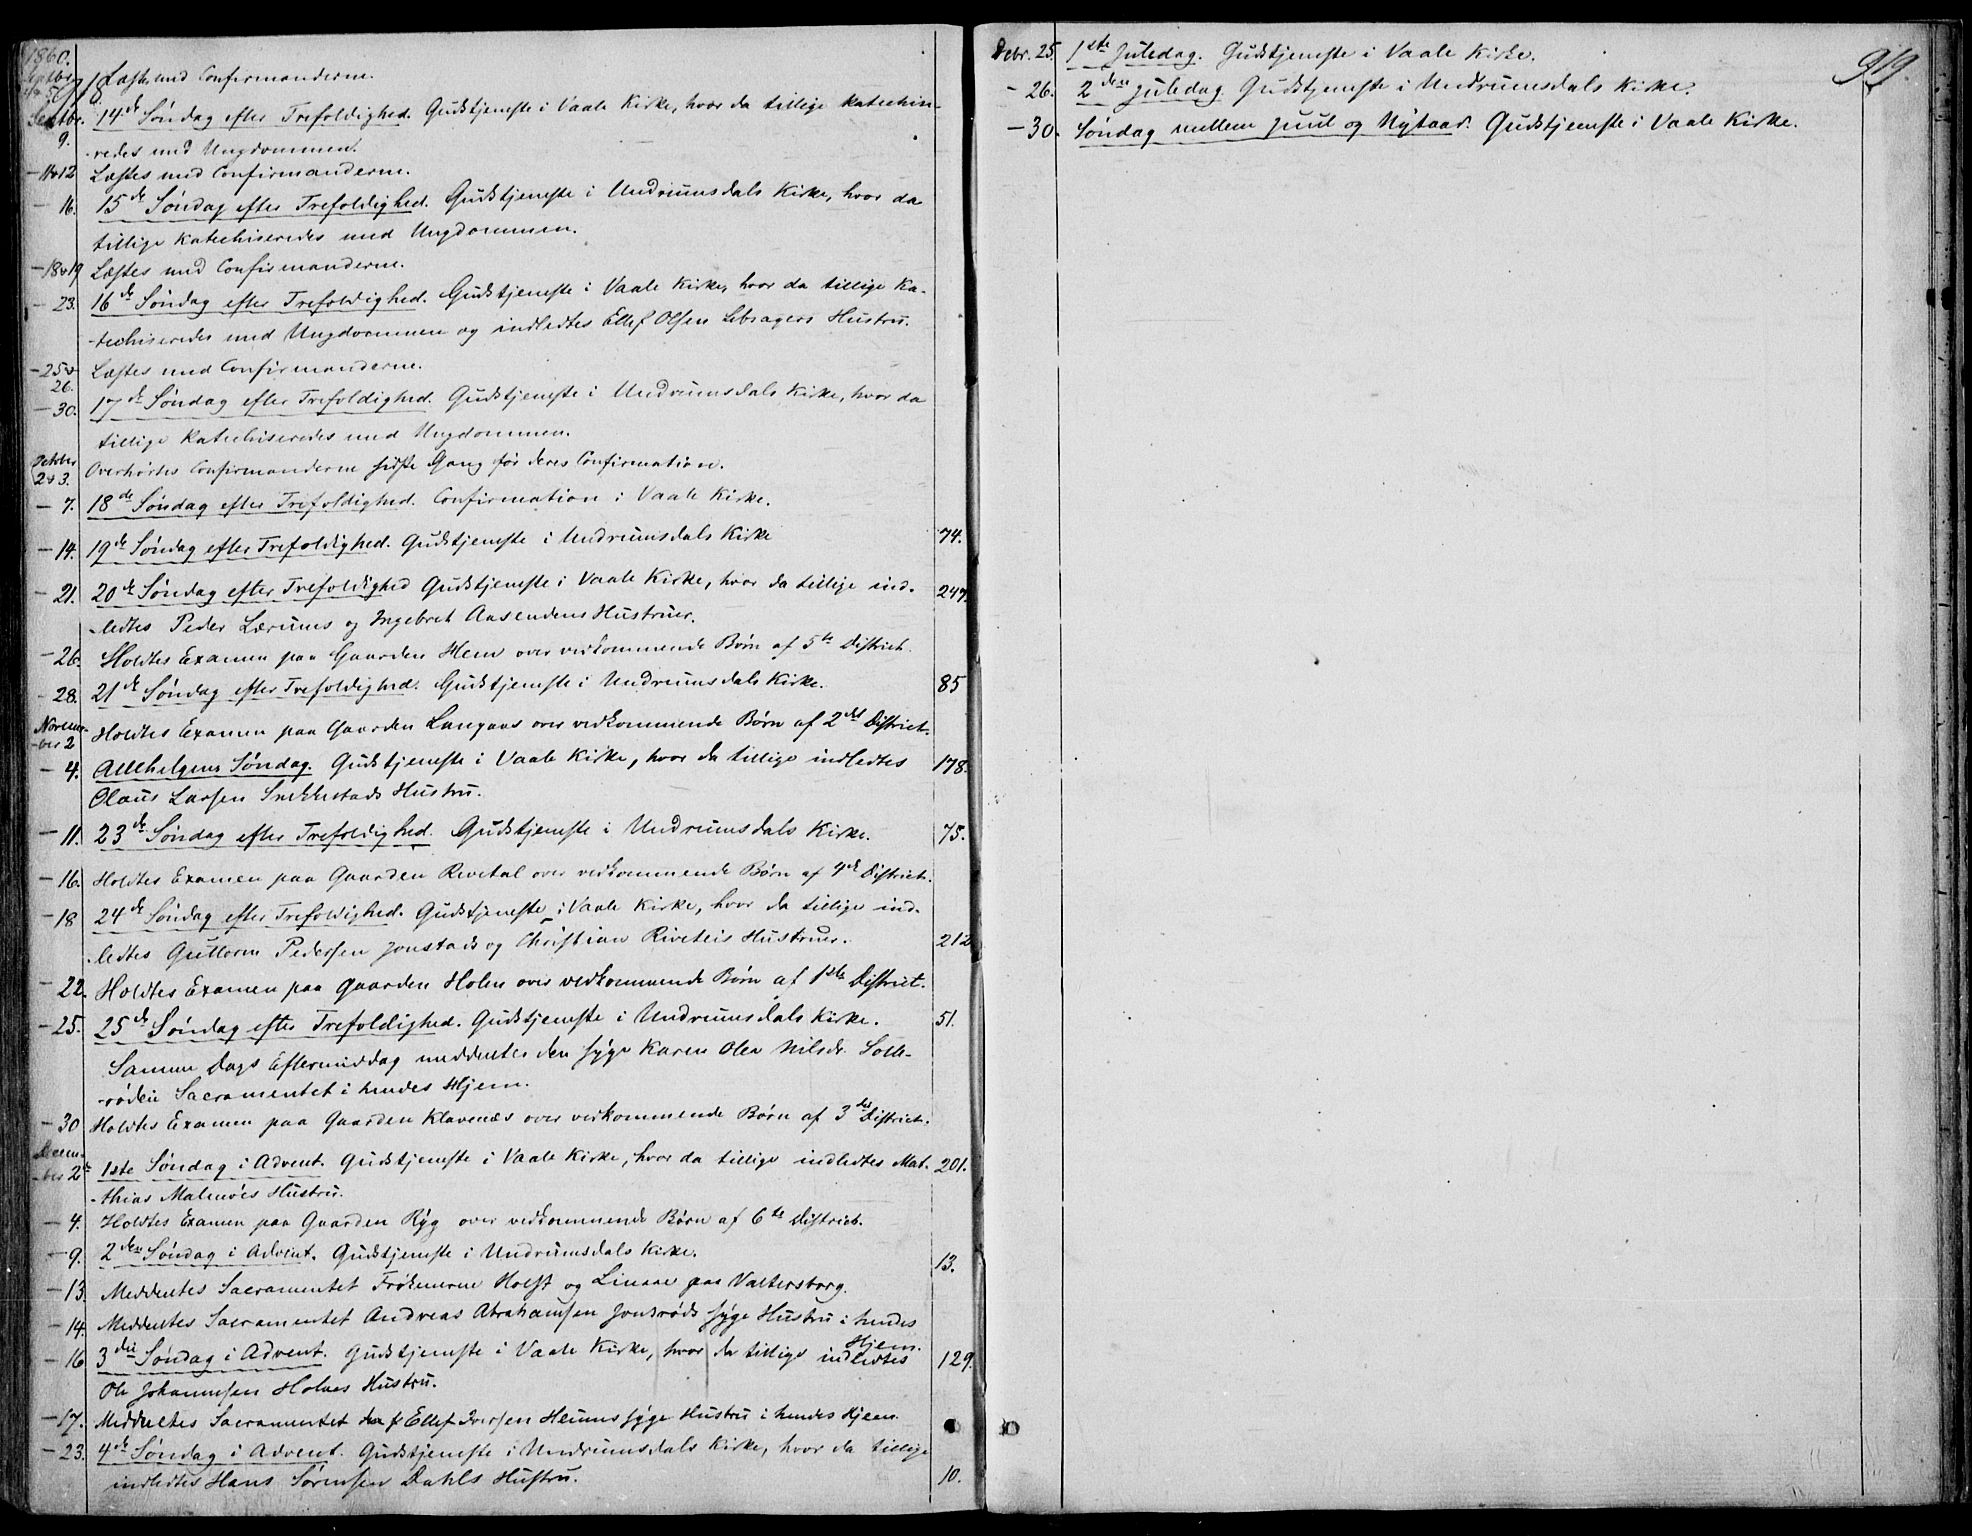 1860.
918
Septbr. Læstes med Confirmanderne.
Septbr. 14de Søndag efter Trefoldighed. Gudstjeneste i Vaale Kirke, hvor da tillige katechise-
9. -redes med Ungdommen.
- 11 & 12 Læstes med Confirmanderne.
- 16. 15de Søndag efter Trefoldighed. Gudstjeneste i Undrumsdals Kirke, hvor da
tillige katechiseredes med Ungdommen.
- 18 & 19 Læstes med Confirmanderne.
- 23. 16de Søndag efter Trefoldighed. Gudstjeneste i Vaale Kirke, hvor da tillige Ka-
-techiseredes med Ungdommen og indledtes Ellef Olsen Lebsagers Hustru.
- 25 & 26. Læstes med Confirmanderne.
- 30. 17de Søndag efter Trefoldighed. Gudstjeneste i Undrumsdals Kirke, hvor da
tillige katechiseredes med Ungdommen.
October 2 & 3. Overhørtes Confirmanderne sidste Gang før deres Confirmation.
- 7. 18de Søndag efter Trefoldighed. Confirmation i Vaale Kirke.
- 14. 19de Søndag efter Trefoldighed. Gudstjeneste i Undrumsdals Kirke 74.
- 21. 20de Søndag efter Trefoldighed Gudstjeneste i Vaale Kirke, hvor da tillige ind- 247.
-ledtes Peder Lærums og Ingebret Aasendens Hustruer.
- 26. Holdtes Examen paa Gaarden Hem over vedkommende Børn af 5te District.
- 28. 21de Søndag efter Trefoldighed. Gudstjeneste i Undrumsdals Kirke. 85
November 2 Holdtes Examen paa Gaarden Langaas over vedkommende Børn af 2det District.
- 4. Allehelgens Søndag. Gudstjeneste i Vaale Kirke, hvor da tillige indledtes 178.
Olaus Larsen Snekkestads Hustru.
- 11. 23de Søndag efter Trefoldighed. Gudstjeneste i Undrumsdals Kirke. 75.
- 16. Holdtes Examen paa Gaarden Revetal over vedkommende Børn af 4de District.
- 18 24de Søndag efter Trefoldighed. Gudstjeneste i Vaale Kirke, hvor da tillige ind-
-ledtes Guttorm Pedersen Jonstads og Christian Riveteis Hustruer. 212
- 22. Holdtes Examen paa Gaarden Holen over vedkommende Børn af 1ste District.
- 25. 25de Søndag efter Trefoldighed. Gudstjeneste i Undrumsdals Kirke. 51.
Samme Dags Eftermiddag meddeeltes den syge Karen Olea Nilsdr. Solle-
-rødeie Sacramentet i hendes Hjem.
- 30 Holdtes Examen paa Gaarden Klavenæs over vedkommende Børn af 3det District.
December 2de 1ste Søndag i Advent. Gudstjeneste i Vaale Kirke, hvor da tillige indledtes Mat- 201.
-thias Malmøes Hustru.
- 4. Holdtes Examen paa Gaarden Ryg over vedkommende Børn af 6te District.
- 9. 2den Søndag i Advent. Gudstjeneste i Undrumsdals Kirke. 13.
- 13. Meddeeltes Sacramentet Frøknerne Holst og Linaae paa Valtersborg.
- 14. Meddeeltes Sacramentet Andreas Abrahamsen Jonsrøds syge Hustru i hendes
Hjem.
- 16 3die Søndag i Advent. Gudstjeneste i Vaale Kirke, hvor da tillige indledtes 129.
Ole Johannesen Holmes Hustru.
- 17. Meddeeltes Sacramentet Ellef Iversen Heums syge Hustru i hendes Hjem.
- 23. 4de Søndag i Advent. Gudstjeneste i Undrumsdals Kirke, hvor da tillige
indledtes Hans Sørensen Dahls Hustru. 10.
919.
Debr. 25. 1ste Juledag. Gudstjeneste i Vaale Kirke.
- 26. 2den Juledag Gudstjeneste i Undrumsdals Kirke.
- 30. Søndag mellem Juul og Nytaar. Gudstjeneste i Vaale Kirke.